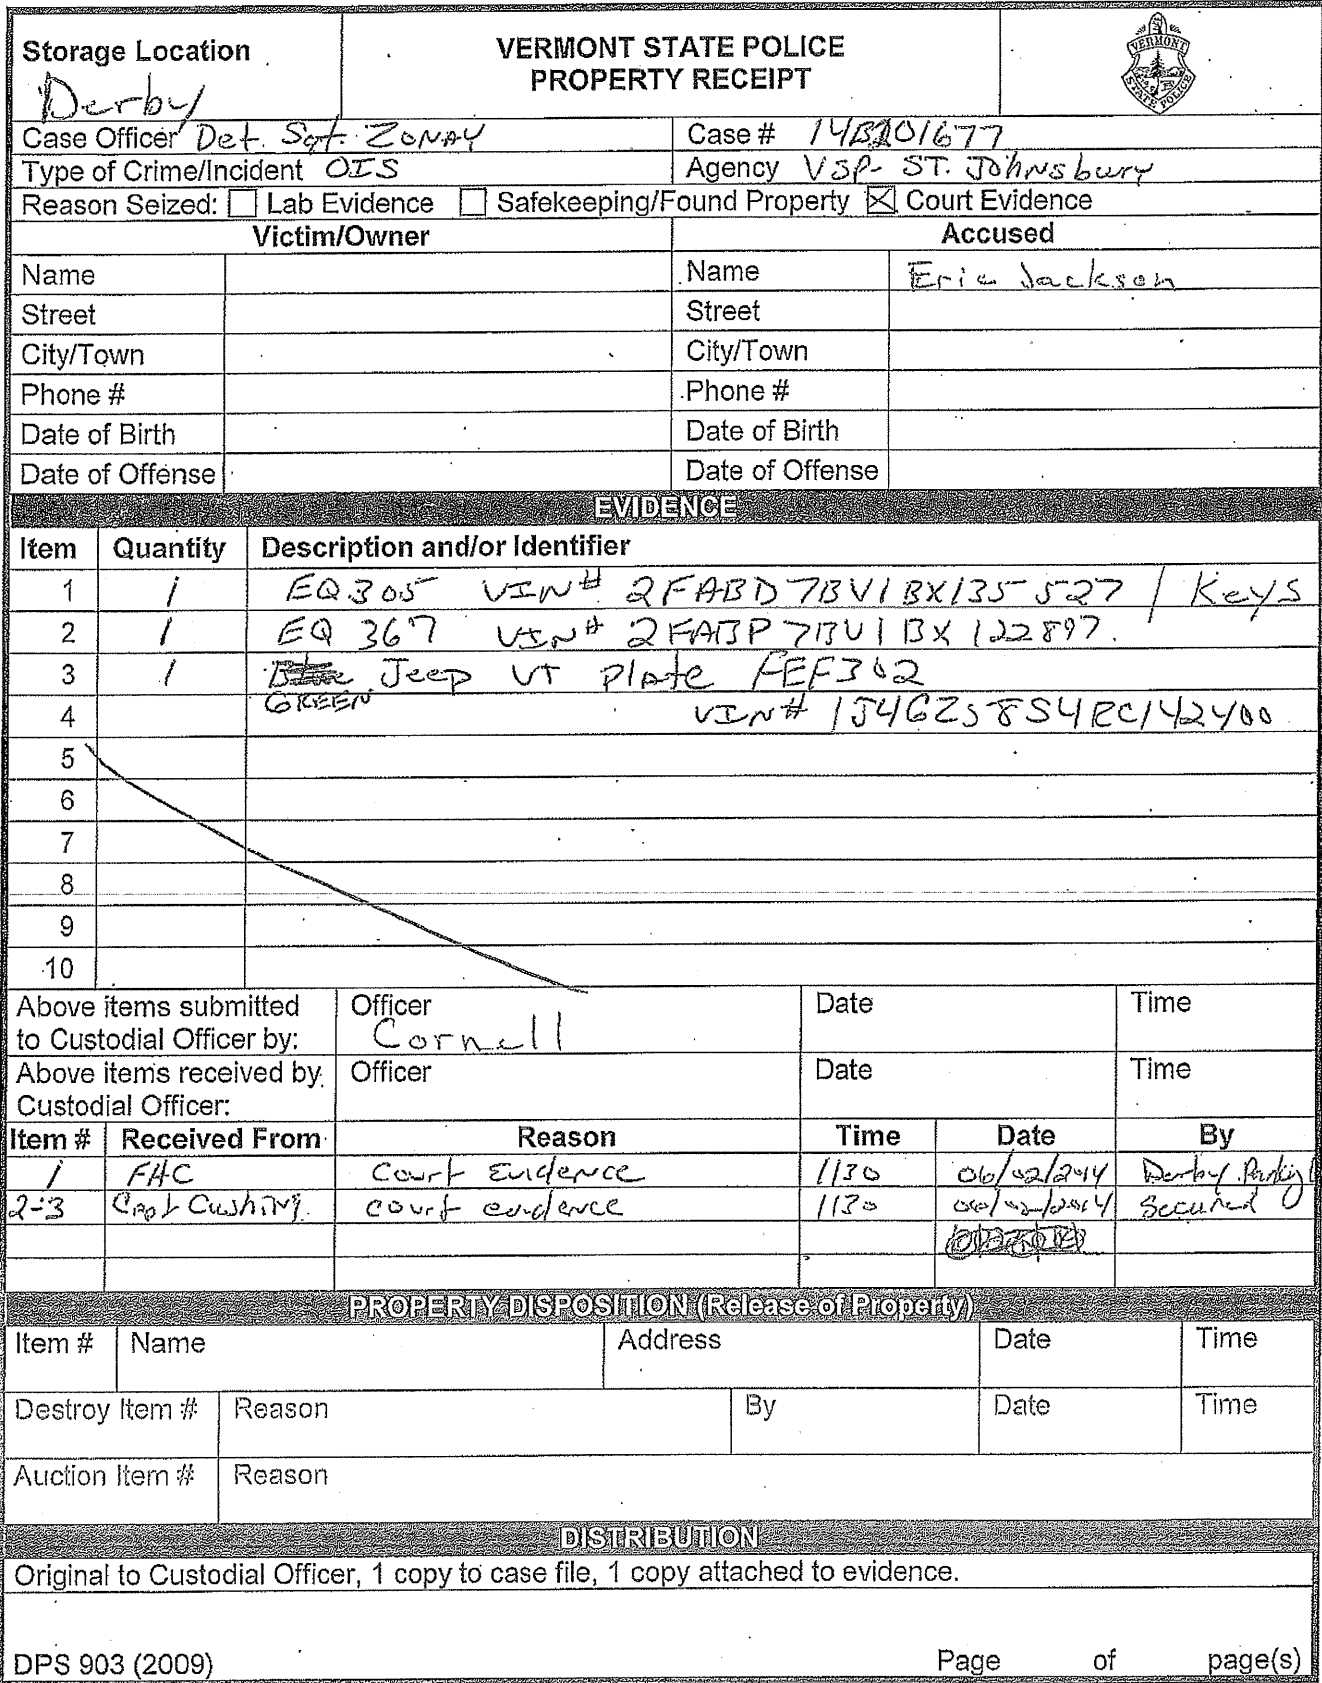 Storage Location
Derby
VERMONT STATE POLICE
PROPERTY RECEIPT
VERMONT
STATE POLICE
Case Officer Det. Sgt. ZONAY Case # 14B201677
Type of Crime/Incident OIS Agency VSP- ST. Johnsbury
Reason Seized: ☐ Lab Evidence ☐ Safekeeping/Found Property ☒ Court Evidence
Victim/Owner Accused
Name Name Eric Jackson
Street Street
City/Town City/Town
Phone # Phone #
Date of Birth Date of Birth
Date of Offense Date of Offense
EVIDENCE
Item Quantity Description and/or Identifier
1 1 EQ305 VIN# 2FABD7BV1BX135527 / Keys
2 1 EQ 367 VIN# 2FABP7BV1BX122897.
3 1 Jeep VT Plate FEF302
GREEN
4 VIN# 1J4GZ58S4RC142400
5
6
7
8
9
10
Above items submitted Officer Date Time
to Custodial Officer by: Cornell
Above items received by Officer Date Time
Custodial Officer:
Item # Received From Reason Time Date By
1 FHC Court Evidence 1130 Derby Parking
2-3 Cushing court evidence 1130 Secured
PROPERTY DISPOSITION (Release of Property)
Item # Name Address Date Time
Destroy Item # Reason By Date Time
Auction Item # Reason
DISTRIBUTION
Original to Custodial Officer, 1 copy to case file, 1 copy attached to evidence.
DPS 903 (2009) Page of page(s)